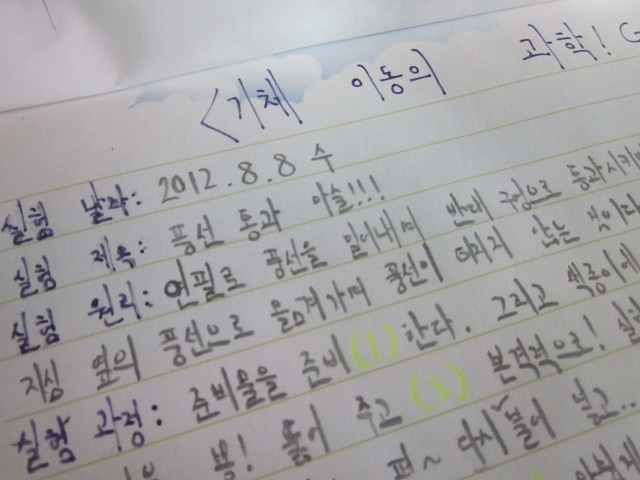 <기체 이동의 과학! G
실험 날짜: 2012.8.8 수
실험 제목: 풍선 통과 마술!!!
실험 원리: 연필로 풍선을 밀어내며 반대 구멍으로 통과시키며
지심 옆의 풍선으로 옮겨가며 풍선이 터지지 않는 것이다
실험 과정: 준비물을 준비(1)한다. 그리고 색종이에
뽕! 뚫어 주고 (3) 본격적으로!
펴~ 다시 풀어 넣고..